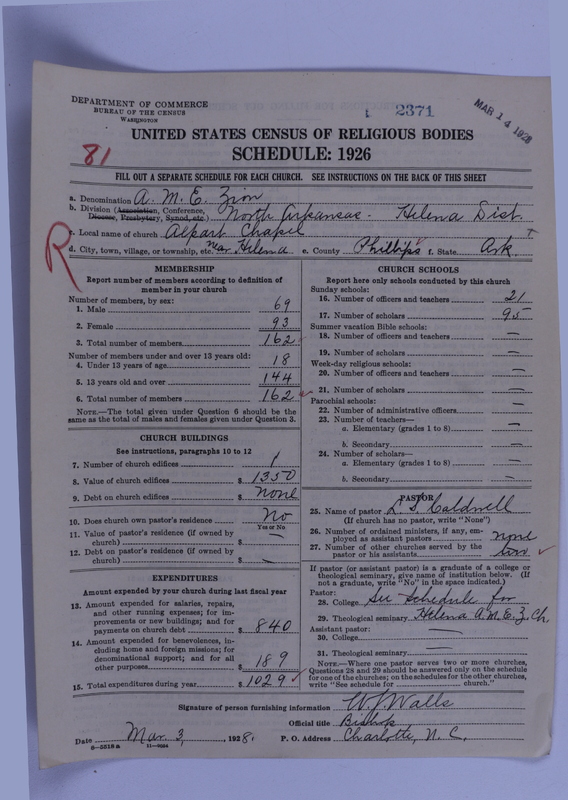 DEPARTMENT OF COMMERCE
BUREAU OF THE CENSUS
WASHINGTON
2371
MAR 14 1928
UNITED STATES CENSUS OF RELIGIOUS BODIES
81
SCHEDULE: 1926
FILL OUT A SEPARATE SCHEDULE FOR EACH CHURCH. SEE INSTRUCTIONS ON THE BACK OF THIS SHEET
a. Denomination A. M. E. Zion
b. Division (Association, Conference, Diocese, Presbytery, Synod, etc.) North Arkansas - Helena Dist.
c. Local name of church Alpart Chapel
R
d. City, town, village, or township, etc. Near Helena e. County Phillips f. State Ark
MEMBERSHIP
Report number of members according to definition of
member in your church
Number of members, by sex:
1. Male 69
2. Female 93
3. Total number of members 162
Number of members under and over 13 years old:
4. Under 13 years of age 18
5. 13 years old and over 144
6. Total number of members 162
NOTE.—The total given under Question 6 should be
same as the total of males and females given under Question 3.
CHURCH BUILDINGS
See instructions, paragraphs 10 to 12
7. Number of church edifices 1
8. Value of church edifices $ 1350
9. Debt on church edifices $ none
10. Does church own pastor's residence No
Yes or No
11. Value of pastor's residence (if owned by
church) $ —
12. Debt on pastor's residence (if owned by
church) $ —
EXPENDITURES
Amount expended by your church during last fiscal year
13. Amount expended for salaries, repairs,
and other running expenses; for im-
provements or new buildings; and for
payments on church debt $ 840
14. Amount expended for benevolences, in-
cluding home and foreign missions; for
denominational support; and for all
other purposes $ 189
15. Total expenditures during year $ 1029
CHURCH SCHOOLS
Report here only schools conducted by this church
Sunday schools:
16. Number of officers and teachers 21
17. Number of scholars 95
Summer vacation Bible schools:
18. Number of officers and teachers —
19. Number of scholars —
Week-day religious schools:
20. Number of officers and teachers —
21. Number of scholars —
Parochial schools:
22. Number of administrative officers —
23. Number of teachers—
a. Elementary (grades 1 to 8) —
b. Secondary —
24. Number of scholars—
a. Elementary (grades 1 to 8) —
b. Secondary —
PASTOR
25. Name of pastor L. S. Caldwell
(If church has no pastor, write "None")
26. Number of ordained ministers, if any, em-
ployed as assistant pastors none
27. Number of other churches served by the
pastor or his assistants
If pastor (or assistant pastor) is a graduate of a college or
theological seminary, give name of institution below. (If
not a graduate, write "No" in the space indicated.)
Pastor:
28. College See Schedule for
29. Theological seminary Helena A. M. E. Z. Ch.
Assistant pastor:
30. College —
31. Theological seminary —
NOTE.—Where one pastor serves two or more churches,
Questions 28 and 29 should be answered only on the schedule
for one of the churches; on the schedules for the other churches,
write "See schedule for church."
Signature of person furnishing information W. J. Walls
Official title Bishop
Date Mar. 3, 1928. P. O. Address Charlotte, N. C.